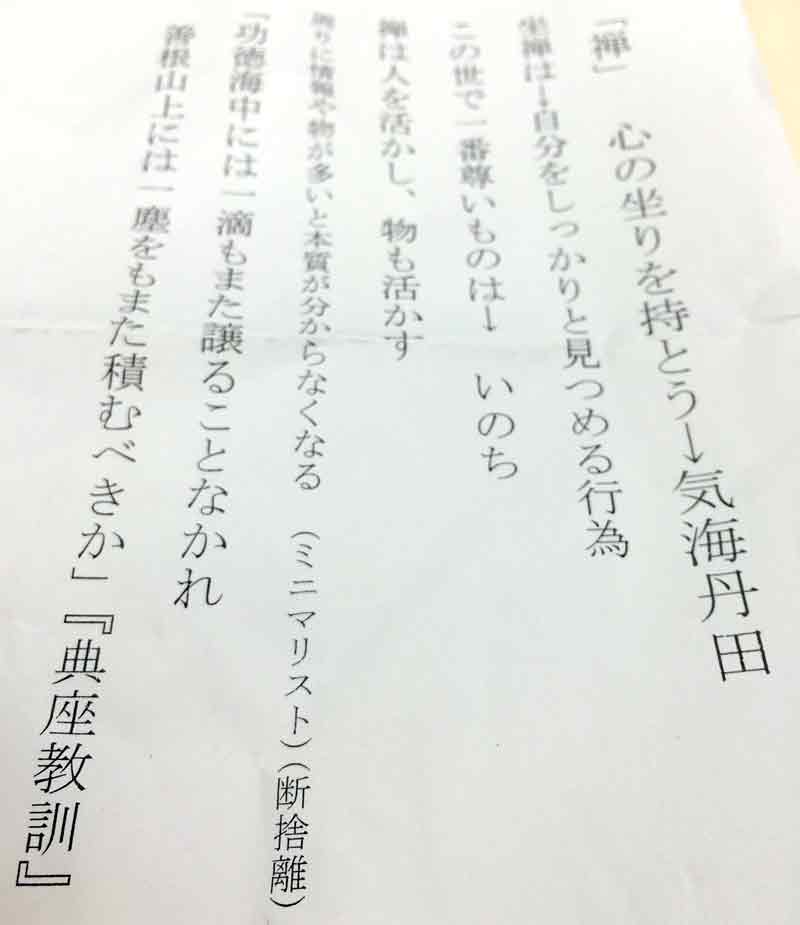 「禅」 心の坐りを持とう→気海丹田
坐禅は→自分をしっかりと見つめる行為
この世で一番尊いものは→ いのち
禅は人を活かし、物も活かす
周りに情報や物が多いと本質が分からなくなる (ミニマリスト)(断捨離)
「功徳海中には一滴もまた譲ることなかれ
善根山上には一塵をもまた積むべきか」『典座教訓』